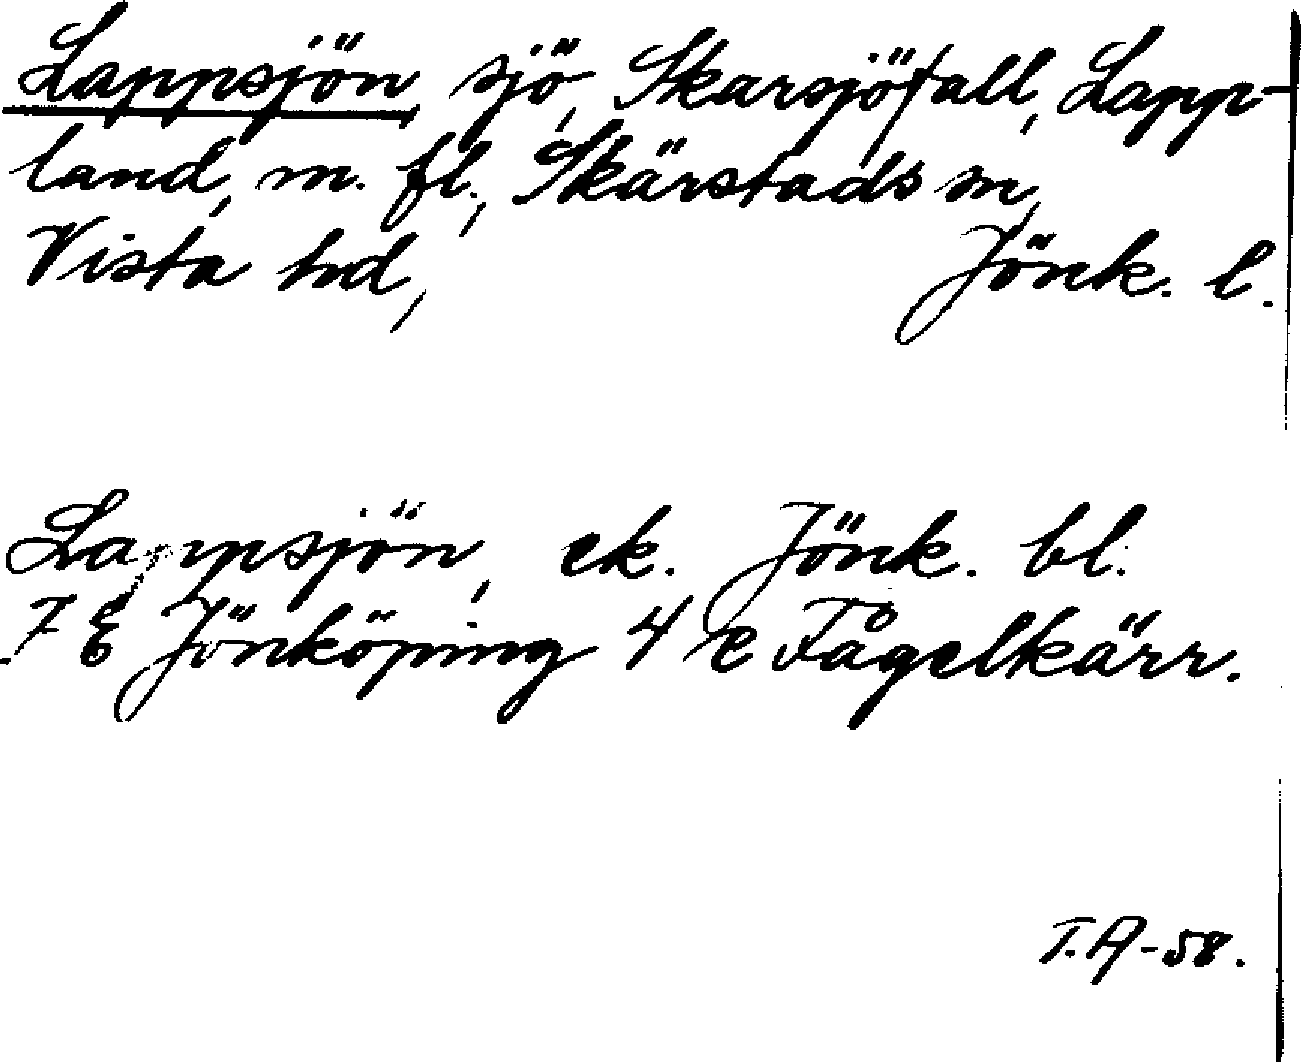 Lappsjön, sjö, Skarsjöfall, Lapp-
land, m. fl., Skärstads sn,
Vista hd, Jönk. l.
Lappsjön, ek. Jönk. bl.
7 E Jönköping 4 e Fågelkärr.
T.A-58.